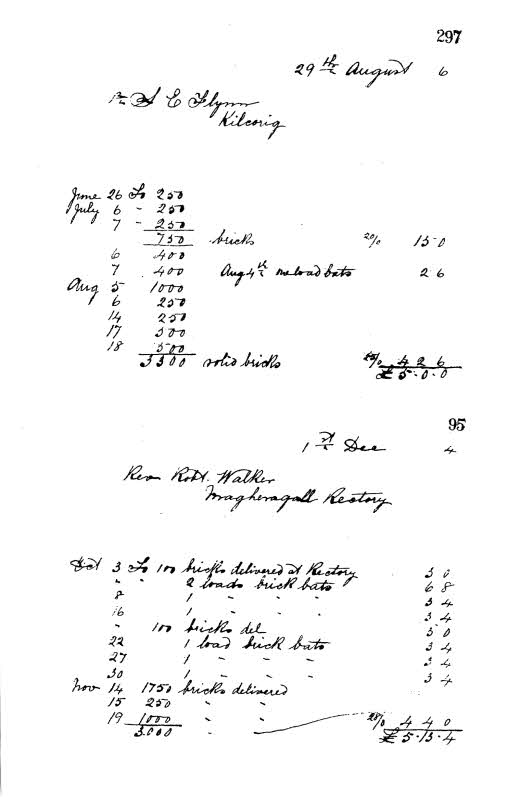 297
29th August 6
Mr S E Flynn
Kilcorig
June 26 To 250
July 6 - 250
7 - 250
750 bricks 20/ 15 0
6 400
7 400 Aug 4th one load bats 2 6
Aug 5 1000
6 250
14 250
17 500
18 500
3300 solid bricks 25/ 4 2 6
£5.0.0
95
1st Dec 4
Rev Robt. Walker
Magheragall Rectory
Oct 3 To 100 bricks delivered at Rectory 3 0
" - 2 loads brick bats 6 8
8 1 - - - 3 4
16 1 - - - 3 4
- 100 bricks del 3 0
22 1 load brick bats 3 4
27 1 - - - 3 4
30 1 - - - 3 4
Nov 14 1750 bricks delivered
15 250 - -
19 1000 - - 28/ 4 4 0
3.000 - £5.13.4